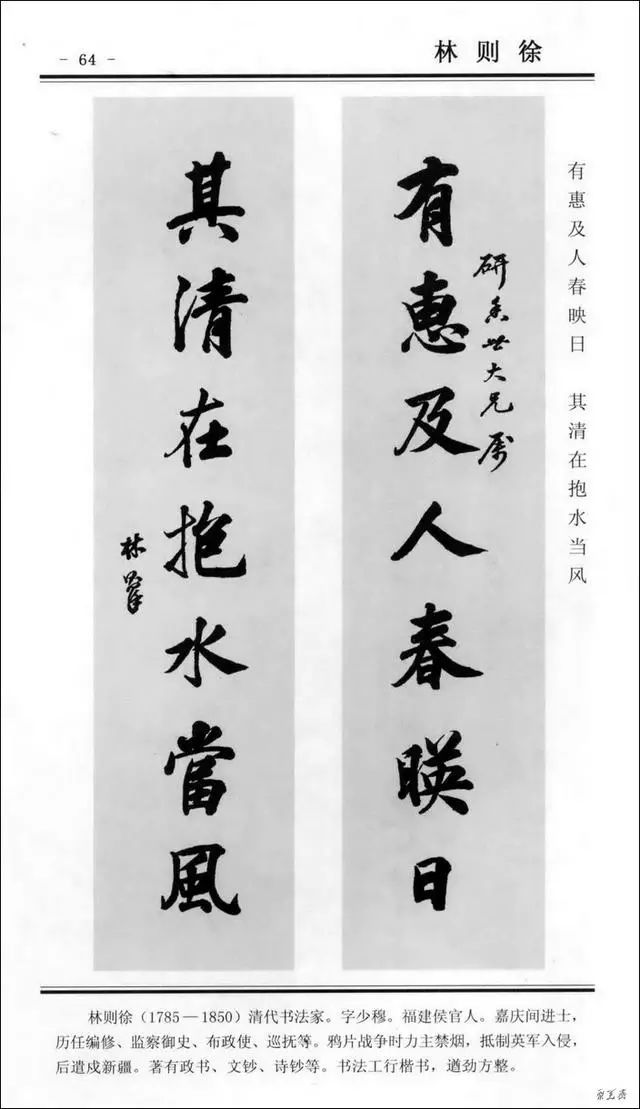 - 64 -
林则徐
有惠及人春映日 其清在抱水当风
有惠及人春暎日
研香世大兄属
其清在抱水當風
林则徐（1785－1850）清代书法家。字少穆。福建侯官人。嘉庆间进士，
历任编修、监察御史、布政使、巡抚等。鸦片战争时力主禁烟，抵制英军入侵，
后遣戍新疆。著有政书、文钞、诗钞等。书法工行楷书，遒劲方整。